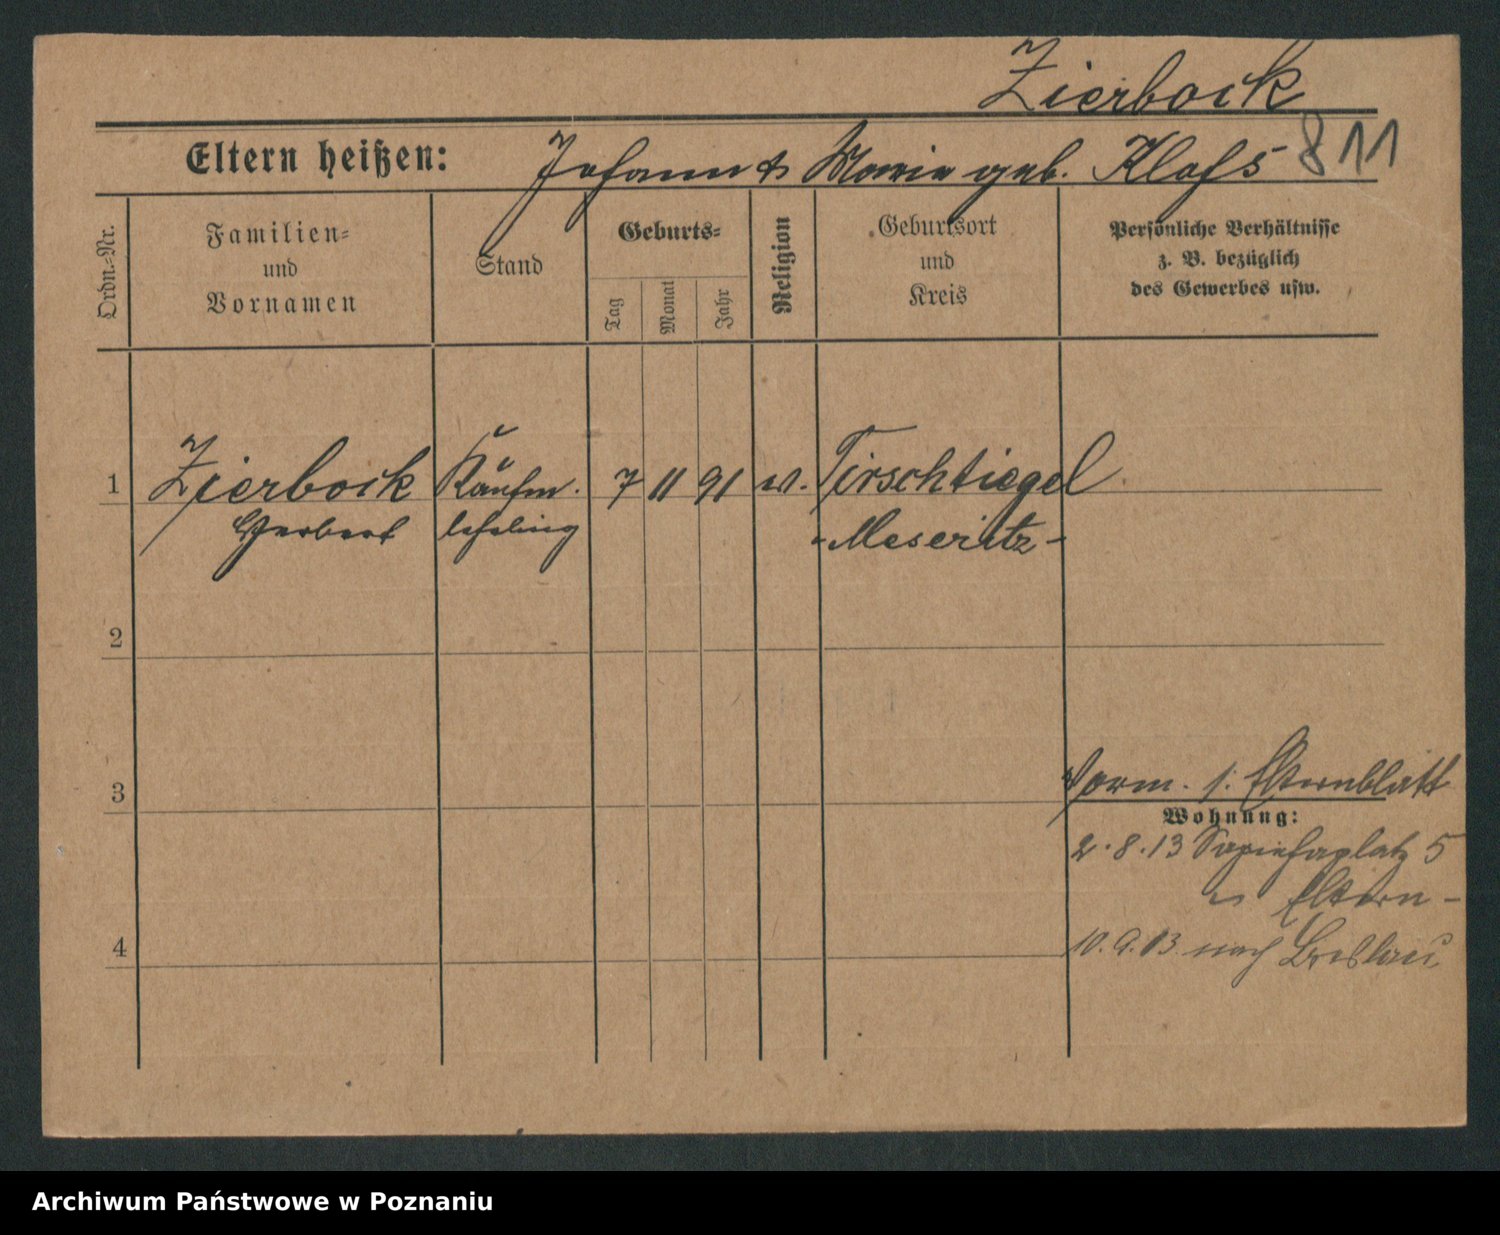 Zierbock
Eltern heißen: Johann & Marie geb. Klafs 811
Ordn.=Nr.
Familien=
und
Vornamen
Stand
Geburts=
Tag
Monat
Jahr
Religion
Geburtsort
und
Kreis
Persönliche Verhältnisse
z. B. bezüglich
des Gewerbes usw.
1 Zierbock Kaufm. 7 11 91 Tirschtiegel
Herbert lehrling -Meseritz-
2
3
Vorm. s. Elternblatt
Wohnung:
2.8.13 Sapiehaplatz 5
Eltern -
4 10.9.13. nach Breslau
Archiwum Państwowe w Poznaniu